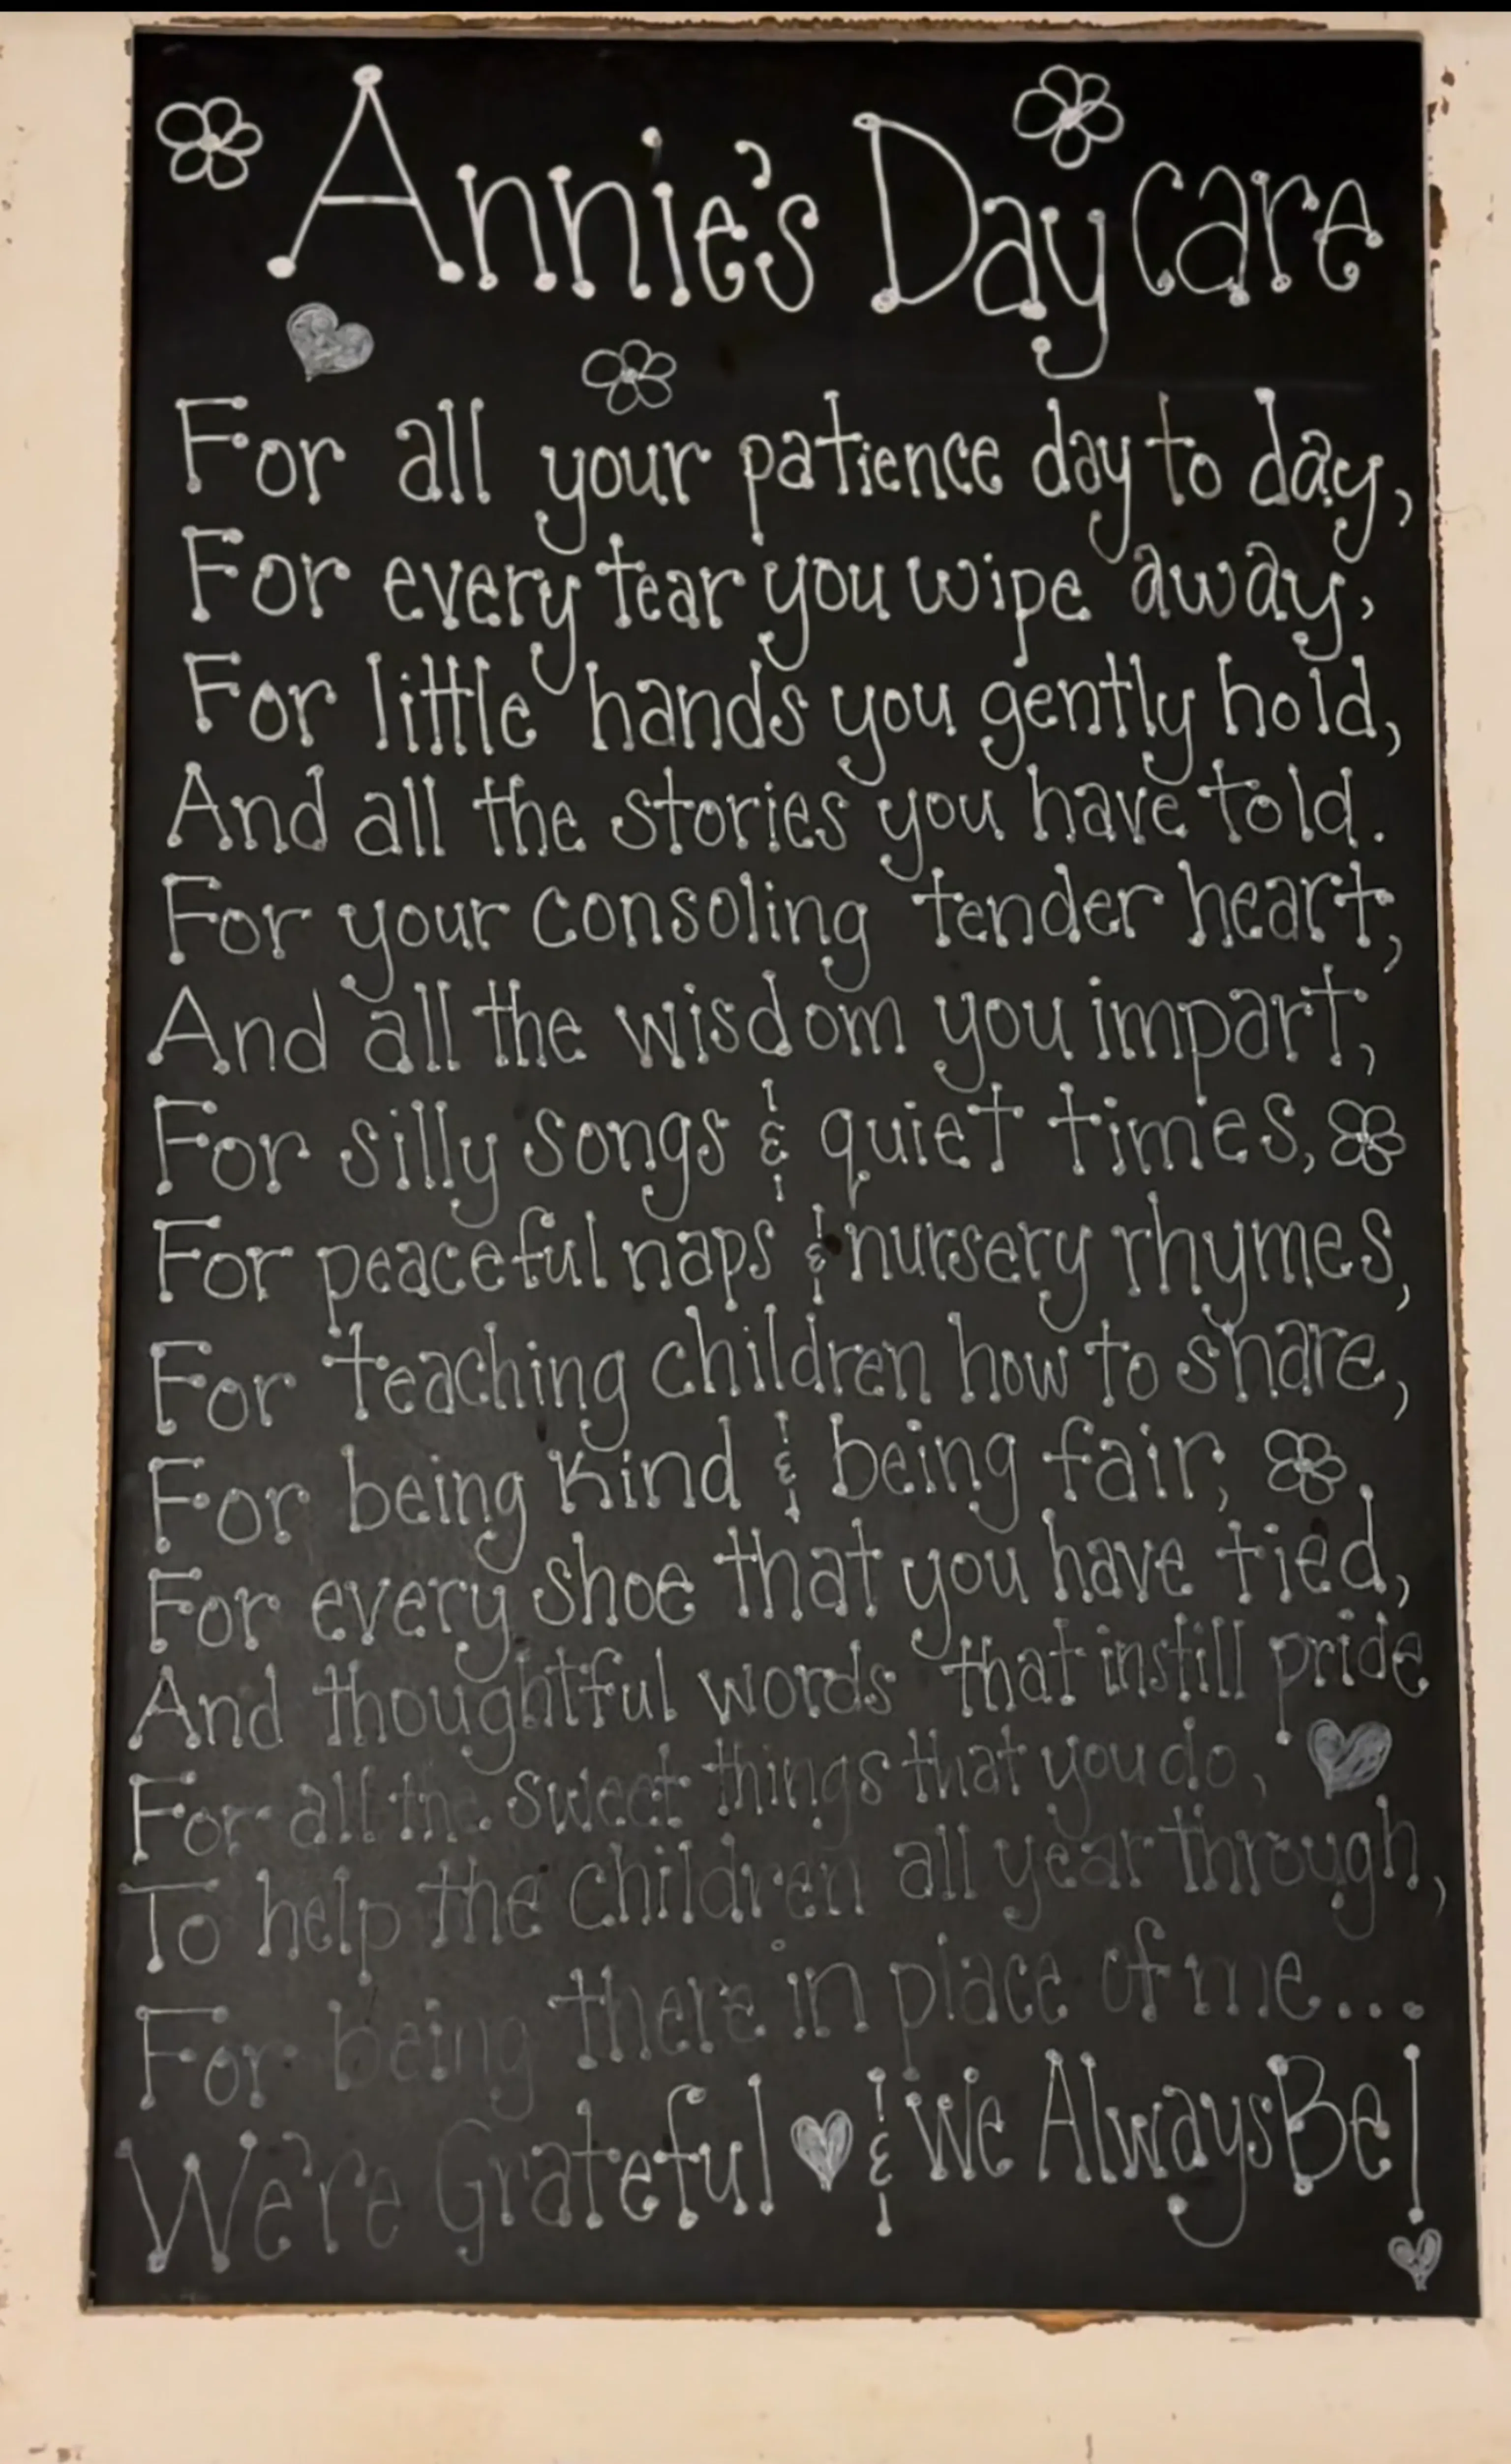 Annie's Daycare
For all your patience day to day,
For every tear you wipe away,
For little hands you gently hold,
And all the stories you have told.
For your consoling tender heart,
And all the wisdom you impart,
For silly songs & quiet times,
For peaceful naps & nursery rhymes,
For teaching children how to share,
For being kind & being fair,
For every shoe that you have tied,
And thoughtful words that instill pride
For all the sweet things that you do,
To help the children all year through,
For being there in place of me...
We're Grateful & We Always Be!